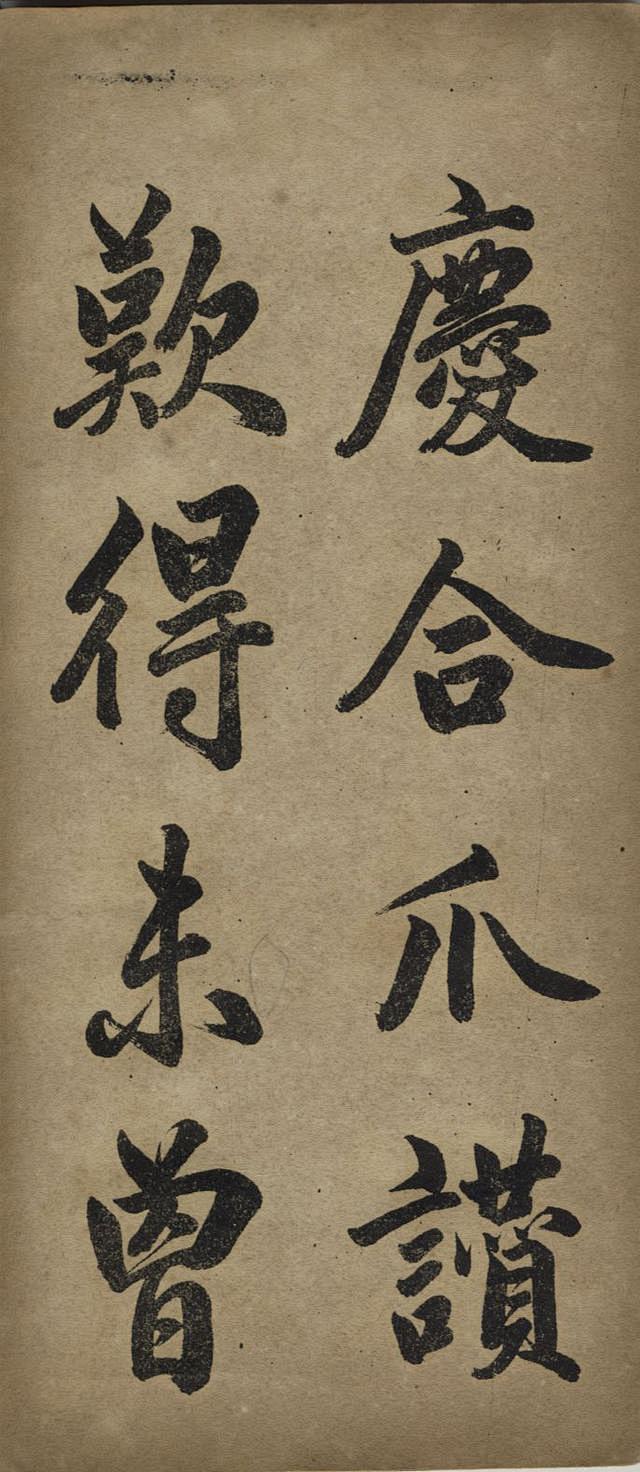 慶合爪讃
歎得未曾